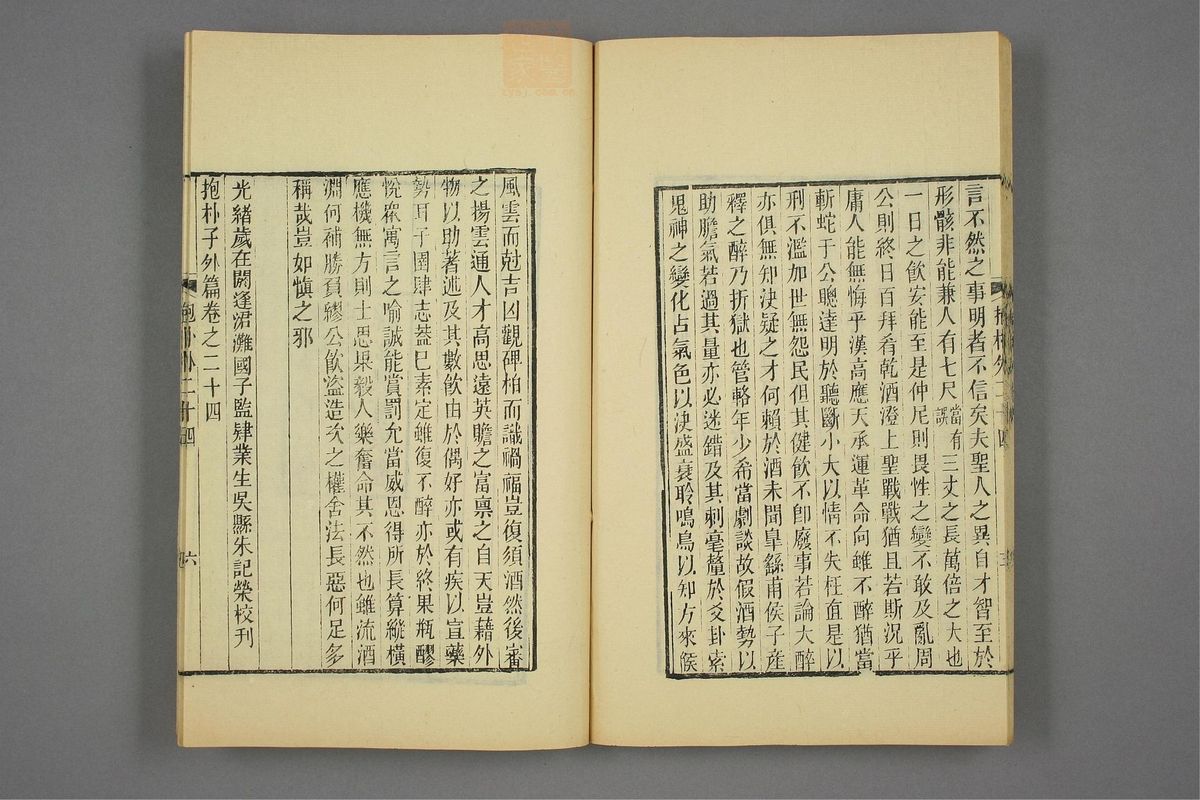 言不然之事明者不信矣夫聖人之異自才智至於
形骸非能兼人有七尺當有誤三丈之長萬倍之大也
一日之飲安能至是仲尼則畏性之變不敢及亂周
公則終日百拜肴乾酒澄上聖戰戰猶且若斯況乎
庸人能無悔乎漢高應天承運革命向雖不醉猶當
斬蛇于公聰達明於聽斷小大以情不失枉直是以
刑不濫加世無怨民但其健飲不卽廢事若論大醉
亦俱無知決疑之才何賴於酒未聞皐繇甫侯子產
釋之醉乃折獄也管輅年少希當劇談故假酒勢以
助膽氣若過其量亦必迷錯及其刺毫釐於爻卦索
鬼神之變化占氣色以決盛衰聆鳴鳥以知方來候
風雲而尅吉凶觀碑柏而識禍福豈復須酒然後審
之揚雲通人才高思遠英贍之富禀之自天豈藉外
物以助著述及其數飲由於偶好亦或有疾以宣藥
勢耳子圉肆志葢已素定雖復不醉亦於終果瓶醪
悅眾寓言之喻誠能賞罰允當威恩得所長算縱橫
應機無方則士思果毅人樂奮命其不然也雖流酒
淵何補勝負繆公飲盜造次之權舍法長惡何足多
稱哉豈如愼之邪
光緒歲在閼逢涒灘國子監肄業生吳縣朱記榮校刊
抱朴子外篇卷之二十四
抱朴外二十四
六